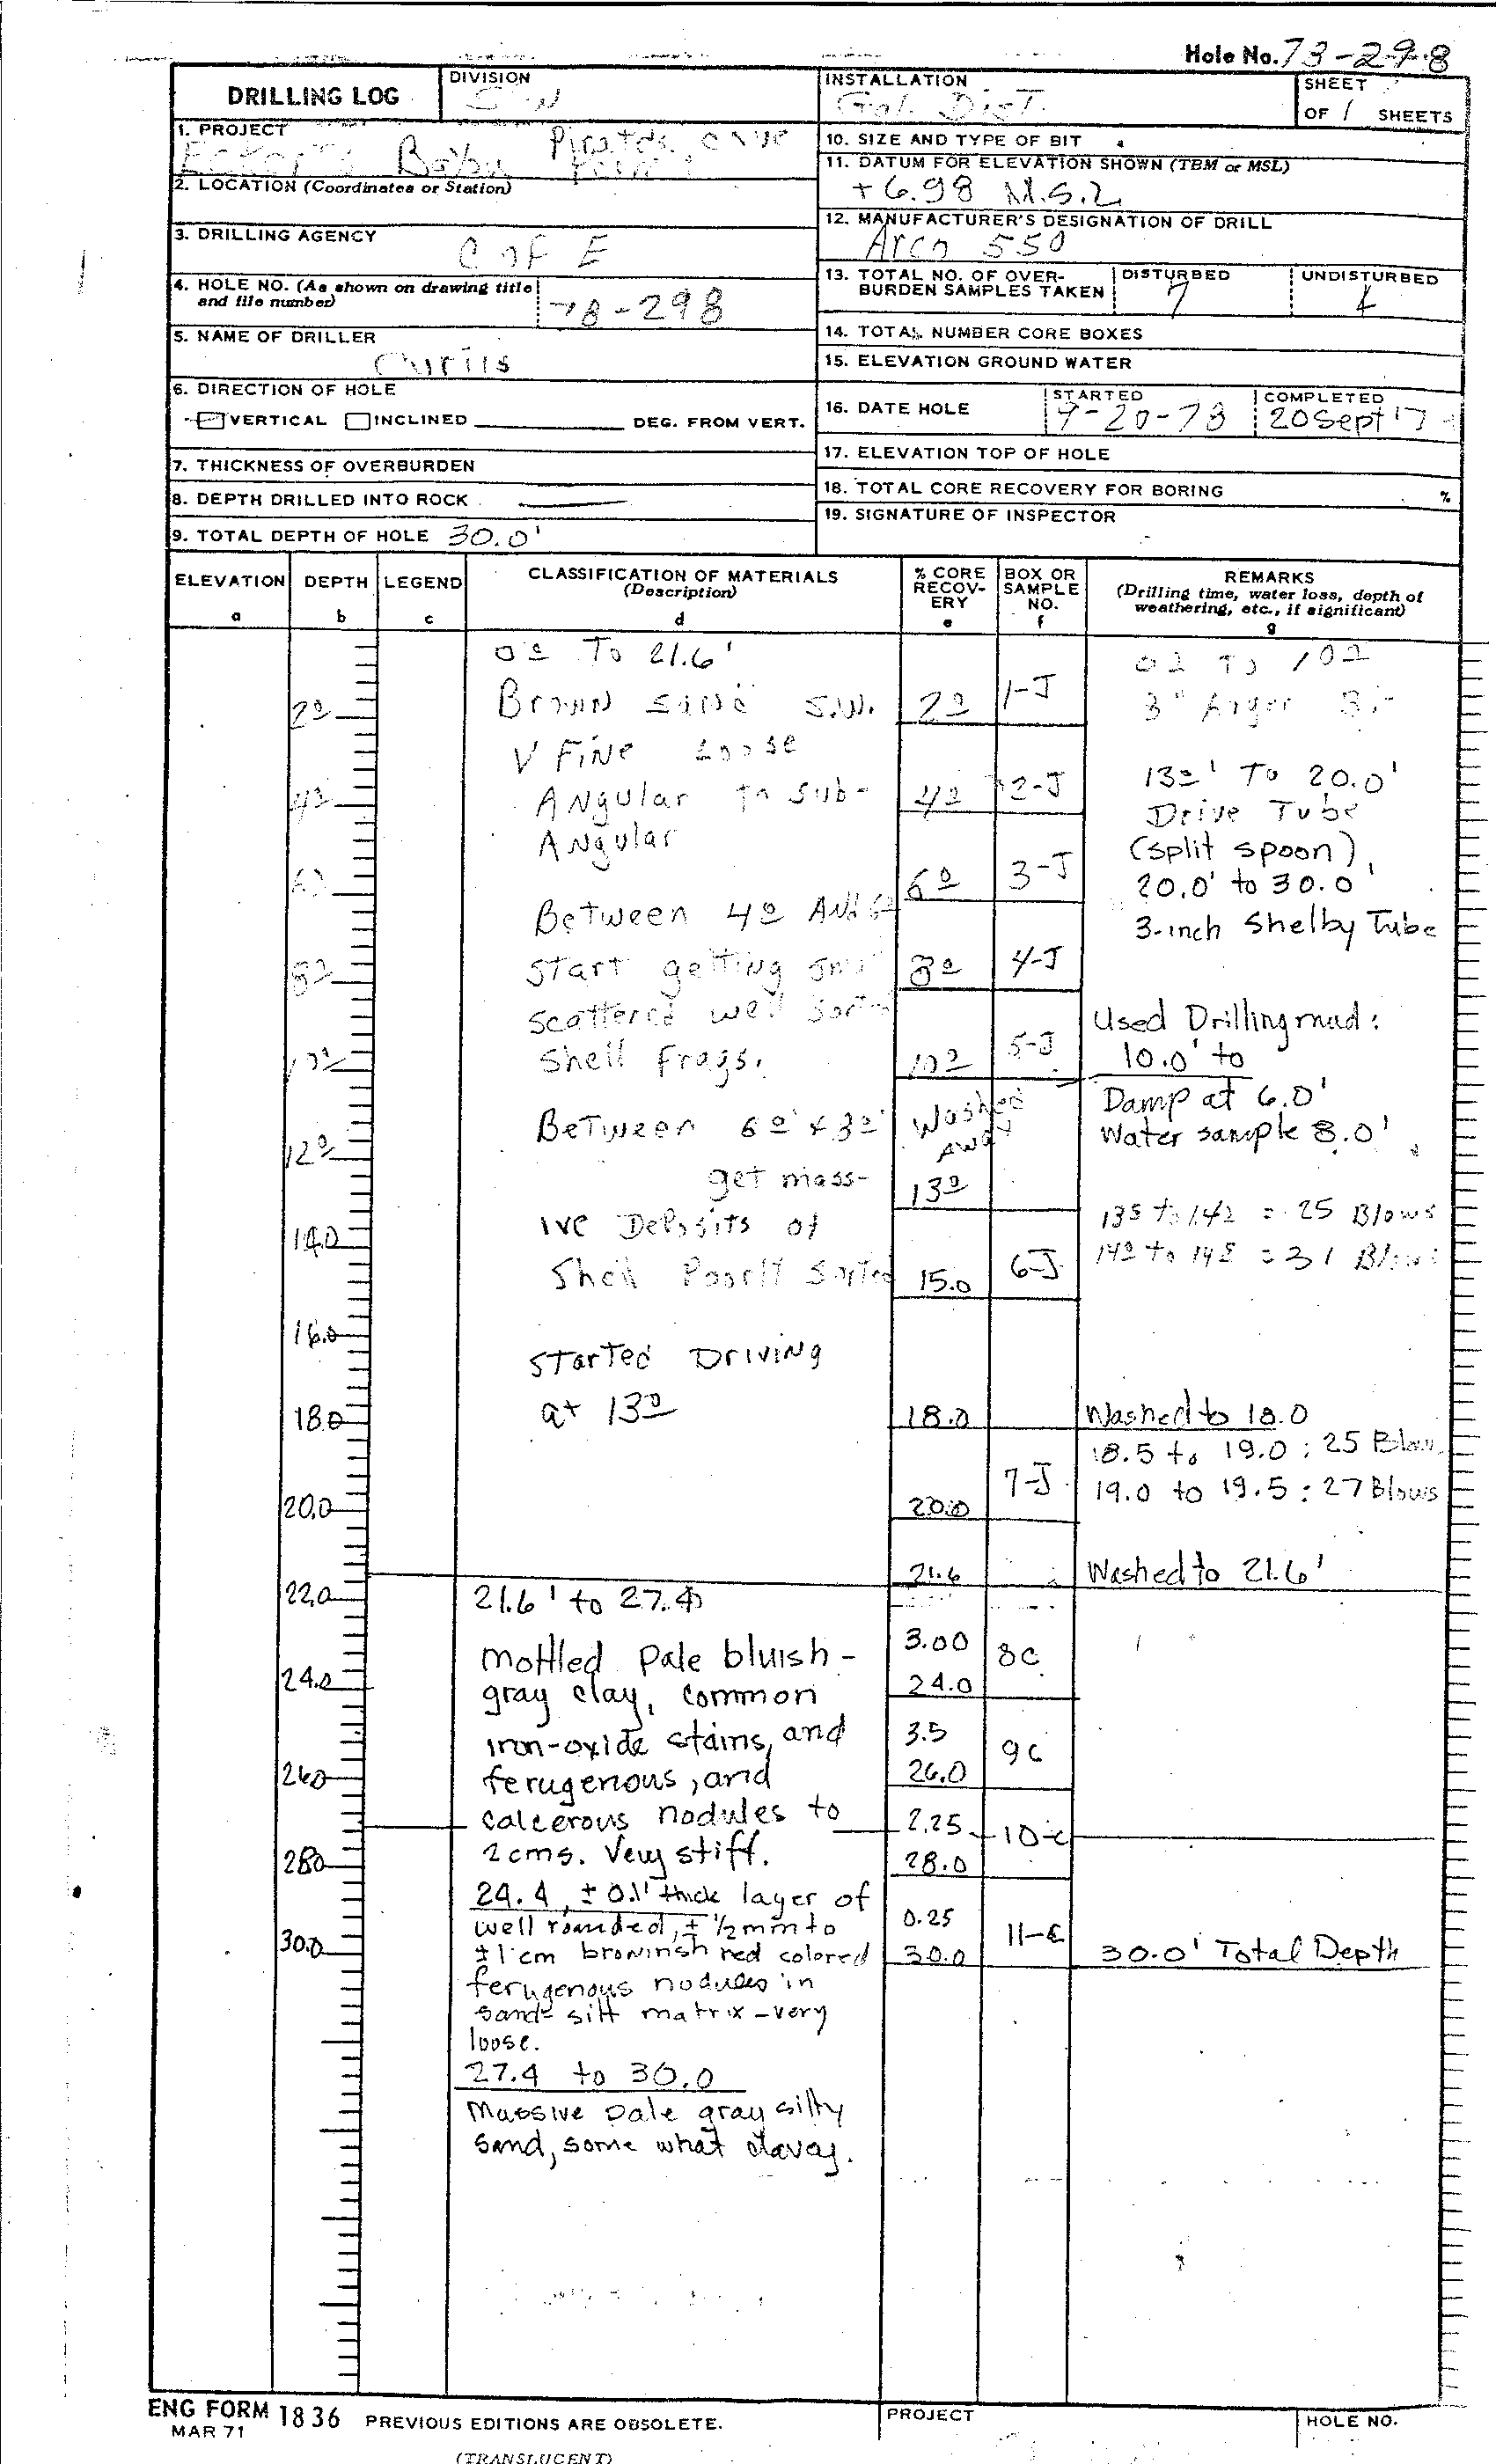 Hole No. 73-298
DRILLING LOG
DIVISION
SW
INSTALLATION
Gal. Dist.
SHEET
OF 1 SHEETS
1. PROJECT
Pirates Cove
2. LOCATION (Coordinates or Station)
3. DRILLING AGENCY
C of E
4. HOLE NO. (As shown on drawing title
and file number)
78-298
5. NAME OF DRILLER
Curtis
6. DIRECTION OF HOLE
VERTICAL INCLINED DEG. FROM VERT.
7. THICKNESS OF OVERBURDEN
8. DEPTH DRILLED INTO ROCK
9. TOTAL DEPTH OF HOLE 30.0'
10. SIZE AND TYPE OF BIT
11. DATUM FOR ELEVATION SHOWN (TBM or MSL)
+6.98 M.S.L
12. MANUFACTURER'S DESIGNATION OF DRILL
Arco 550
13. TOTAL NO. OF OVER-
BURDEN SAMPLES TAKEN
DISTURBED
7
UNDISTURBED
4
14. TOTAL NUMBER CORE BOXES
15. ELEVATION GROUND WATER
16. DATE HOLE
STARTED
9-20-78
COMPLETED
20 Sept 17
17. ELEVATION TOP OF HOLE
18. TOTAL CORE RECOVERY FOR BORING %
19. SIGNATURE OF INSPECTOR
ELEVATION
a
DEPTH
b
LEGEND
c
CLASSIFICATION OF MATERIALS
(Description)
d
% CORE
RECOV-
ERY
e
BOX OR
SAMPLE
NO.
f
REMARKS
(Drilling time, water loss, depth of
weathering, etc., if significant)
g
2.0
4.0
6.0
8.0
10.0
12.0
14.0
16.0
18.0
20.0
22.0
24.0
26.0
28.0
30.0
0.0 To 21.6'
Brown sand S.W.
V Fine Loose
Angular to Sub-
Angular
Between 4.0 And 6.0
start getting
scattered well sorted
Shell Frags.
Between 6.0' + 8.0'
get mass-
ive Deposits of
Shell Poorly Sorted
Started Driving
at 13.0
21.6' to 27.4
mottled pale bluish-
gray clay, common
iron-oxide stains, and
ferugenous, and
calcerous nodules to
2cms. Very stiff.
24.4, ± 0.1' thick layer of
well rounded, ± 1/2mm to
±1 cm browinsh red colored
ferugenous nodules in
sand silt matrix-very
loose.
27.4 to 30.0
Massive pale gray silty
sand, some what clayey.
2.0
1-J
4.0
2-J
6.0
3-J
8.0
4-J
10.0
5-J
Washed
Away
13.0
15.0
6-J
18.0
20.0
7-J
21.6
3.00
24.0
8C
3.5
26.0
9C
2.25
28.0
10-C
0.25
30.0
11-C
0.0 To 10.0
3" Auger
13.0' To 20.0'
Drive Tube
(split spoon),
20.0' to 30.0'
3-inch Shelby Tube
Used Drilling mud:
10.0' to
Damp at 6.0'
Water sample 8.0'
13.5 to 14.0 = 25 Blows
14.0 to 14.5 = 31 Blows
Washed to 18.0
18.5 to 19.0: 25 Blow
19.0 to 19.5: 27 Blows
Washed to 21.6'
30.0' Total Depth
ENG FORM 1836 PREVIOUS EDITIONS ARE OBSOLETE.
MAR 71
(TRANSLUCENT)
PROJECT
HOLE NO.